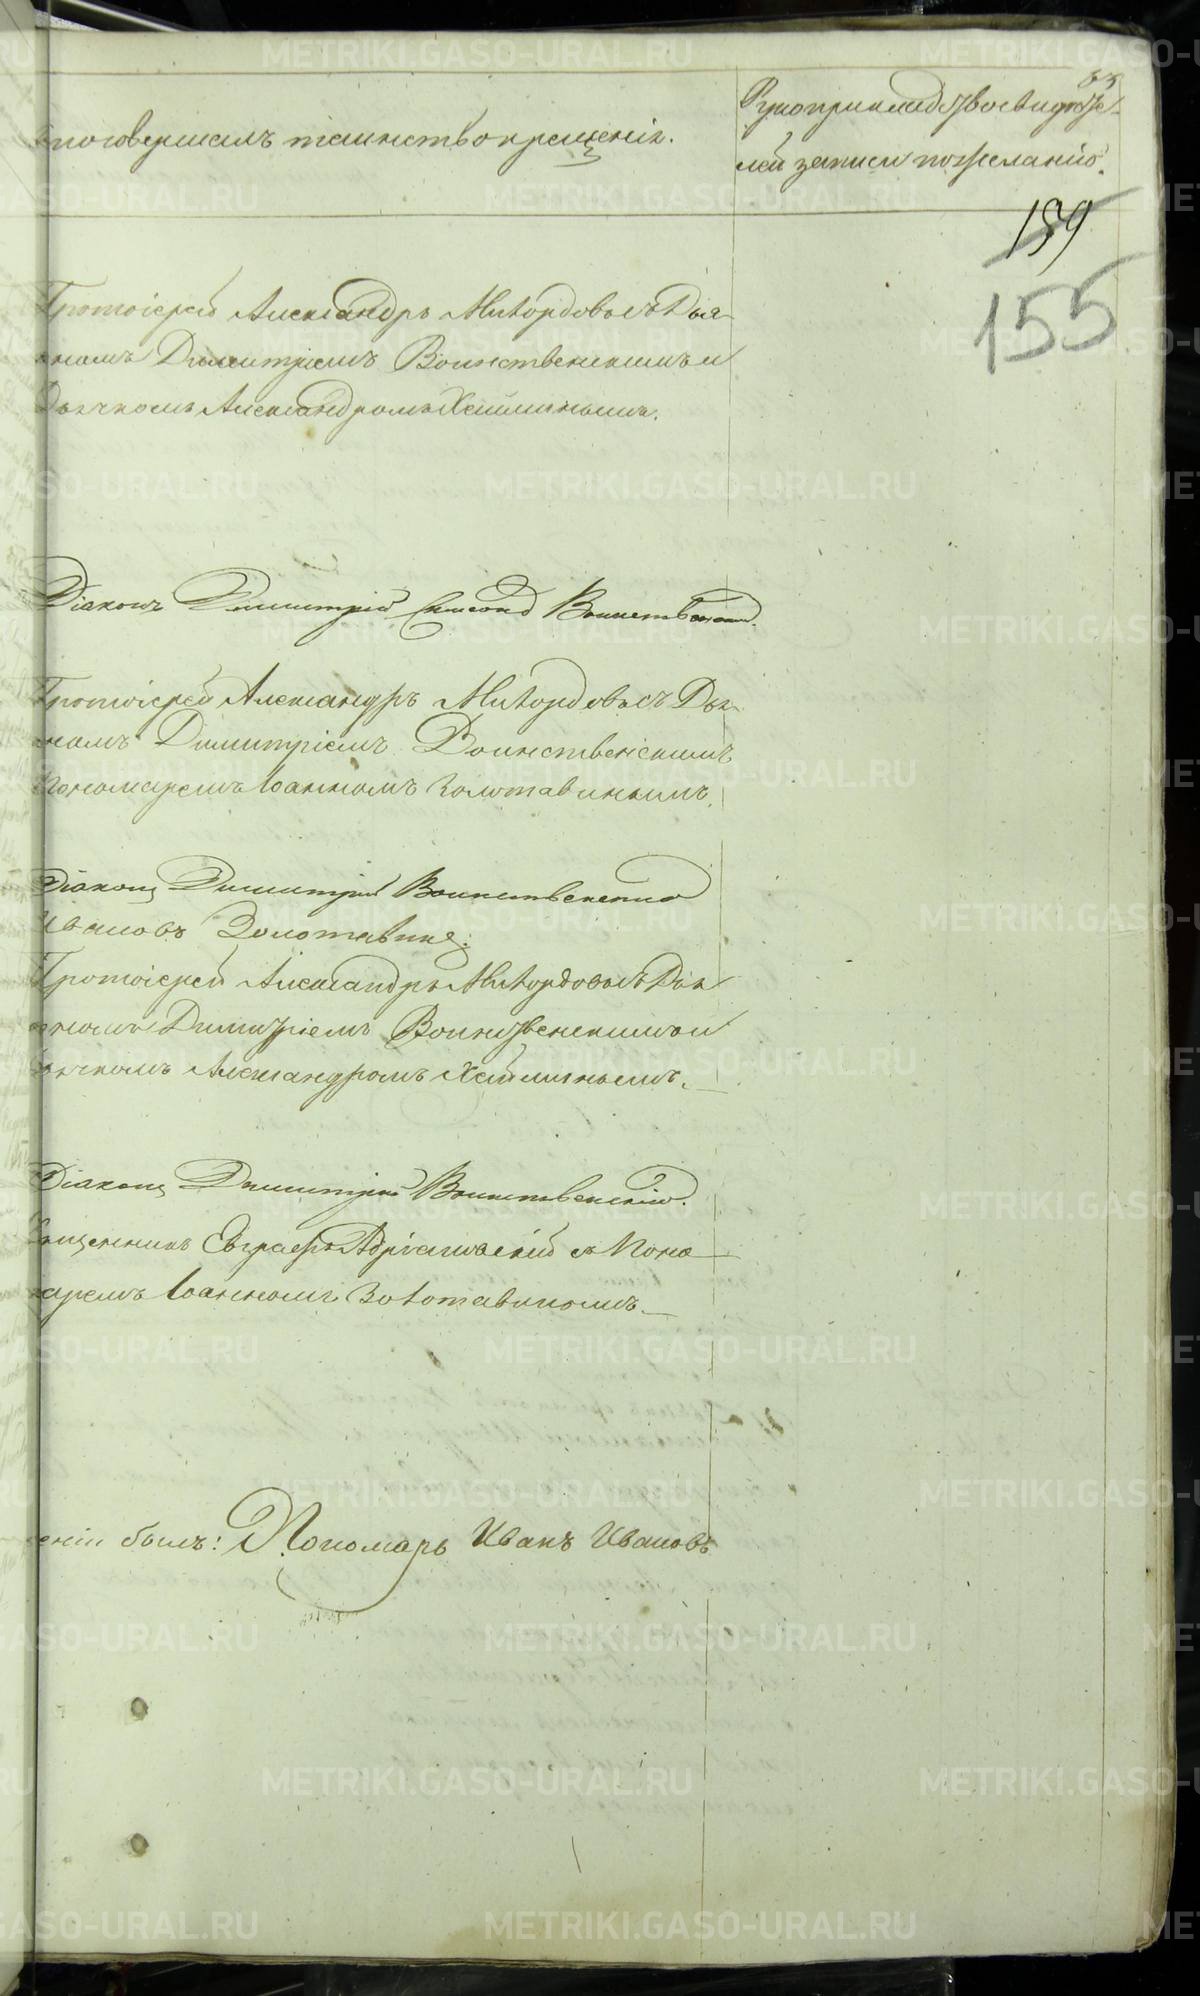 METRIKI.GASO-URAL.RU
55
Рукоприкладство свидѣте-
кто совершалъ таинство крещенія.
лей записи по желанію.
159
155
Протоіерей Александръ Милордовъ съ Діа-
кономъ Димитріемъ Воинственскимъ и
Дьячкомъ Александромъ
Діаконъ Димитрій Воинственскій.
Протоіерей Александръ Милордовъ съ Діа-
кономъ Димитріемъ Воинственскимъ
Пономаремъ Іоанномъ Золотавинымъ.
Діаконъ Димитрій Воинственскій
Ивановъ Золотавинъ.
Протоіерей Александръ Милордовъ съ Діа
кономъ Димитріемъ Воинственскимъ и
Дьячкомъ Александромъ
Діаконъ Димитрій Воинственскій.
Священникъ Евграфъ Адріановскій съ Поно
маремъ Іоанномъ Золотавиномъ.
еніи былъ: Пономарь Иванъ Ивановъ